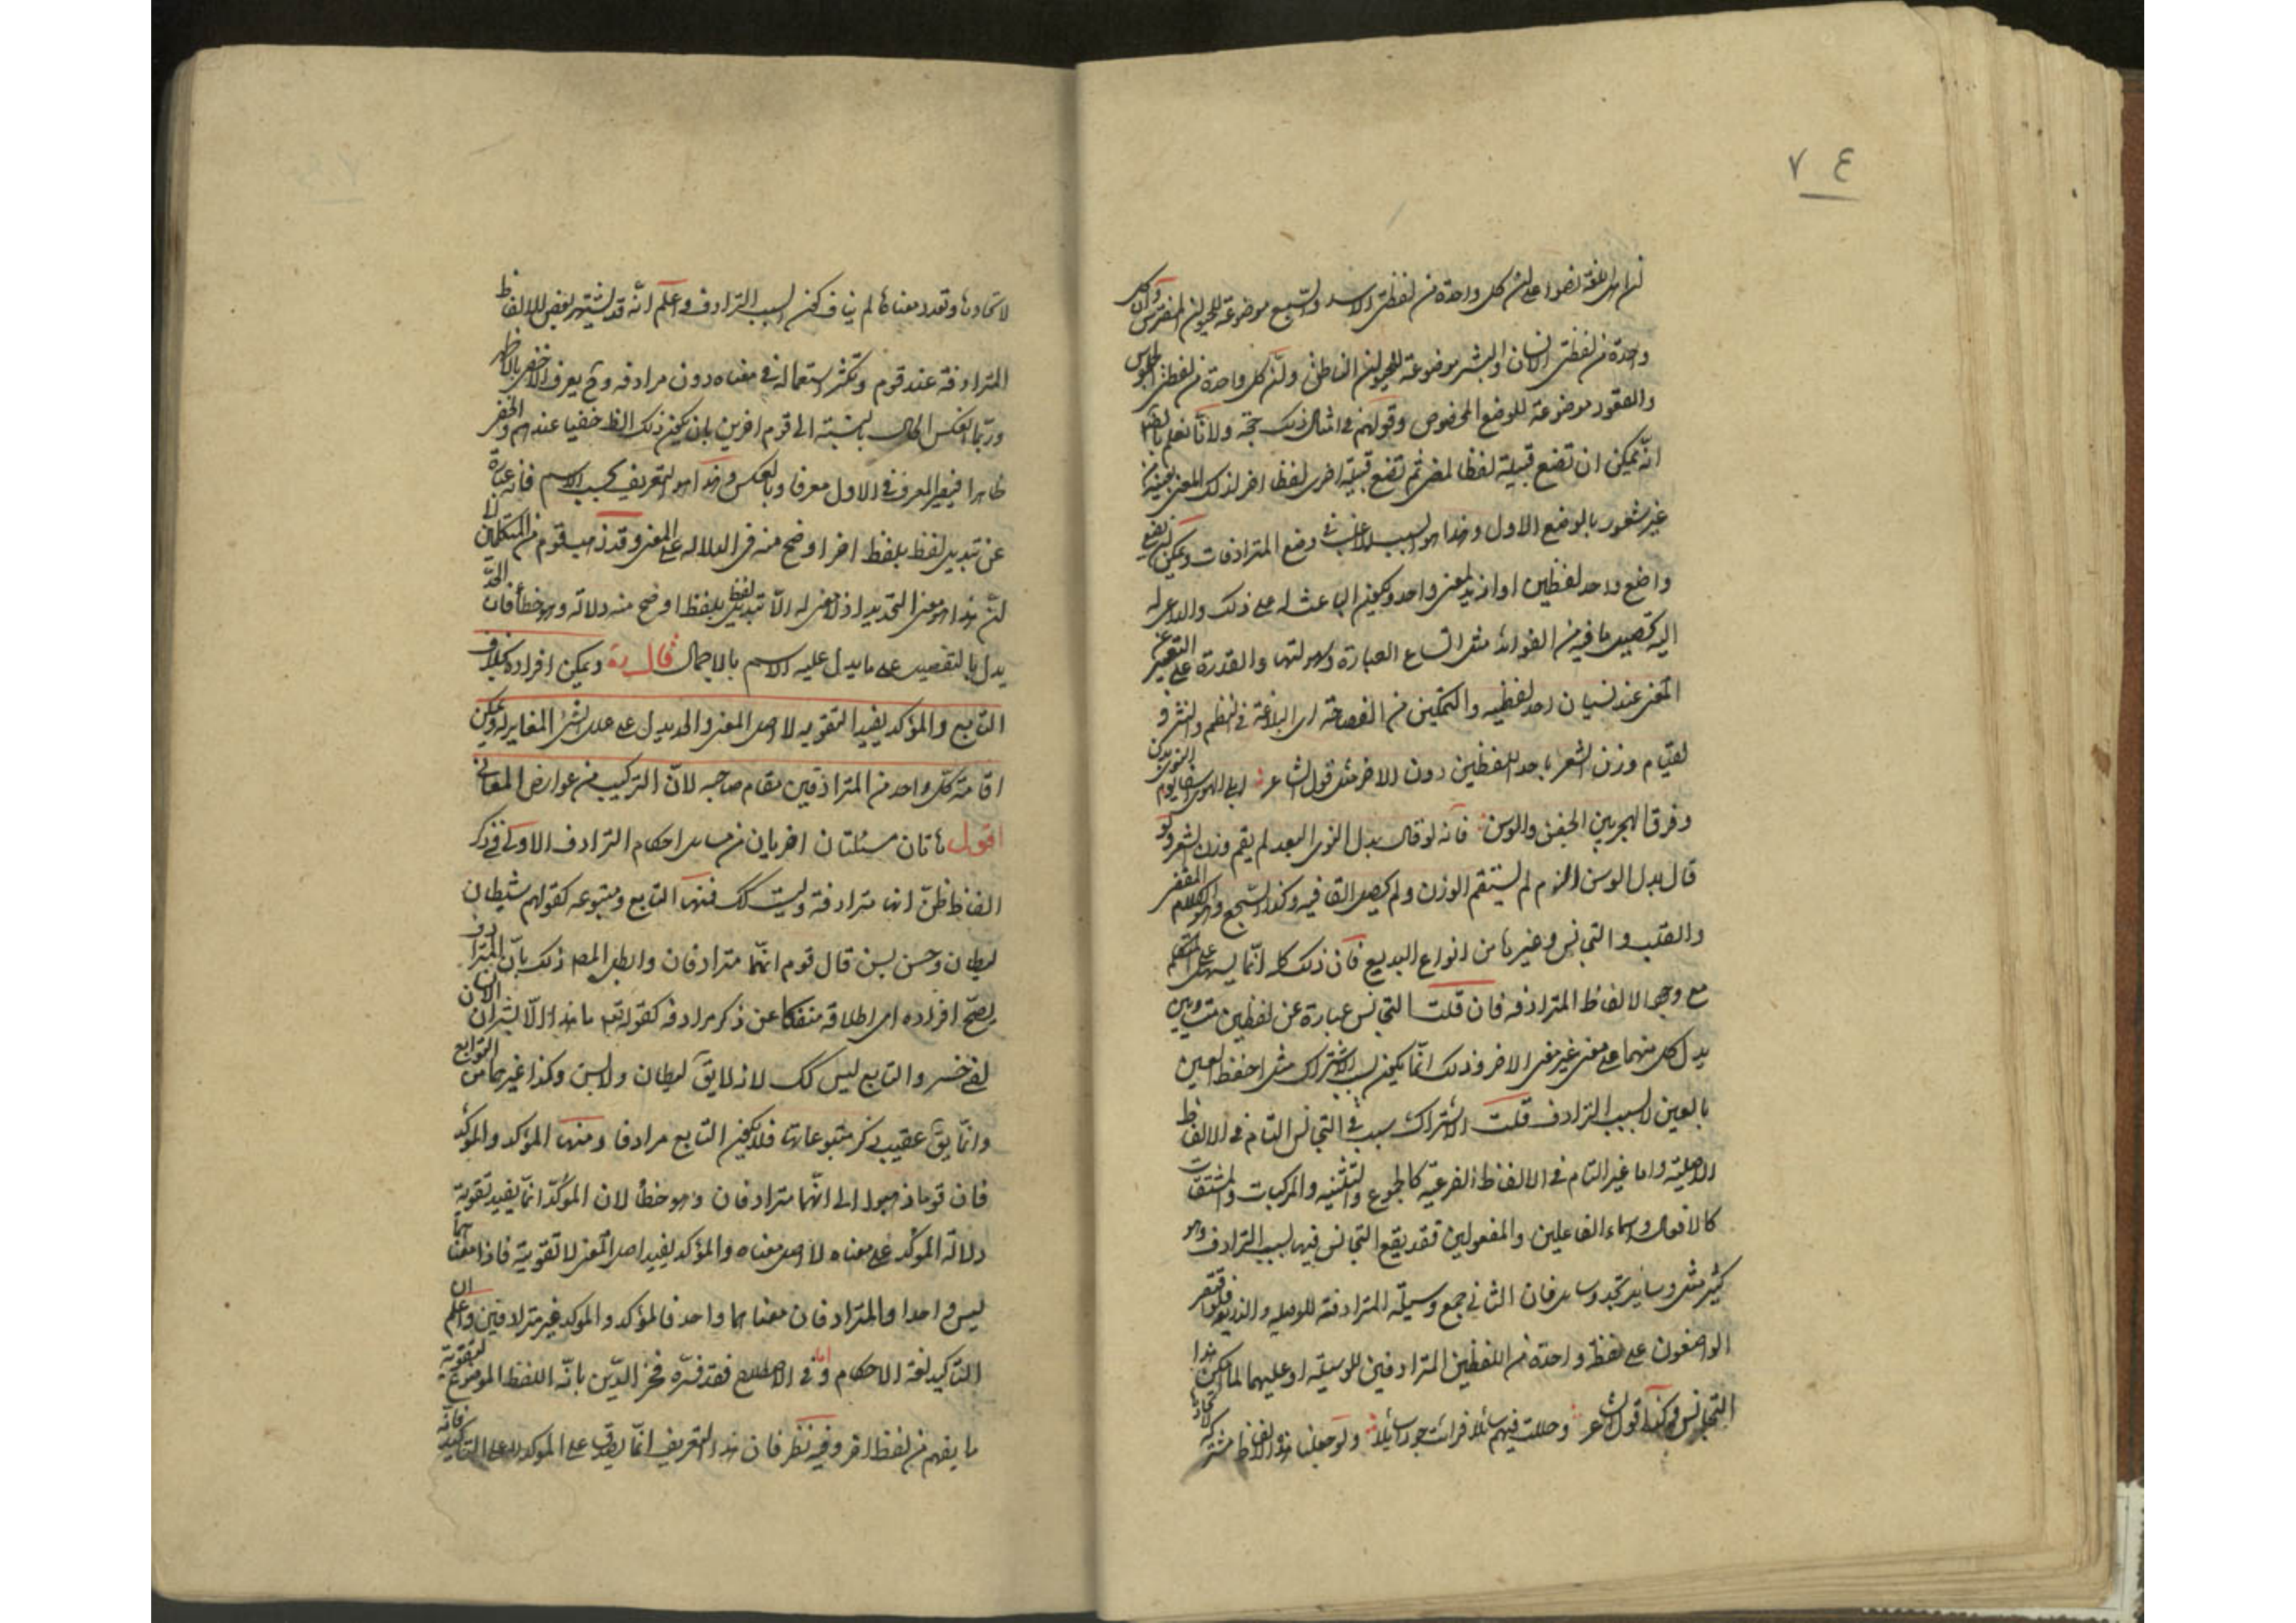 ٧٤
لن اهل اللغة نصوا على ان كل واحدة من لفظتى الاسد والسبع موضوعة للحيوان المفترس وان كل
واحدة من لفظتى الانسان والبشر موضوعة للحيوان الناطق وان كل واحدة من لفظتى الجلوس
والقعود موضوعة للوضع المخصوص وقولهم فى امثال ذلك حجة ولانا نعلم
انه يمكن ان تضع قبيلة لفظا لمعنى ثم تضع قبيلة اخرى لفظا اخر لذلك المعنى بعينه من
غير شعور بالوضع الاول وهذا هو السبب الاغلب فى وضع المترادفات ويمكن ان يضع
واضع واحد لفظين او ازيد لمعنى واحد ويكون الباعث له على ذلك والداعى له
اليه تحصيل ما فيه من الفوائد مثل اتساع العبارة وسهولتها والقدرة على التعبير عن
المعنى عند نسيان احد لفظيه والتمكين من الفصاحة اى البلاغة فى النظم والنثر و
لقيام وزن الشعر باحد اللفظين دون الاخر مثل قول الشاعر ابلى الهوى اسفا يوم النوى بدنى
وفرق الهجر بين الجفن والوسن فانه لو قال بدل النوى البعد لم يقم وزن الشعر ولو
قال بدل الوسن النوم لم يستقم الوزن ولم يحصل القافيه وكذا السجع وهو الكلام المقفى
والقلب والتجانس وغيرها من انواع البديع فان ذلك كله انما يسهل على المتكلم
مع وجود الالفاظ المترادفه فان قلت التجانس عبارة عن لفظين متساويين
يدل كل منهما على معنى غير معنى الاخر وذلك انما يكون بسبب الاشتراك مثل احفظ العين
بالعين لا بسبب الترادف قلت الاشتراك سبب فى التجانس التام فى الالفاظ
الاصلية واما غير التام فى الالفاظ الفرعية كالجموع والتثنيه والمركبات والمشتقات
كالافعال واسماء الفاعلين والمفعولين فقد يقع التجانس فيها بسبب الترادف وهو
كثير مثل وسائد تجد وسائل فان الثانى جمع وسيلة المترادفة للوصيله والذريعة فلو اقتصر
الواضعون على لفظة واحدة من اللفظين المترادفين للوسيلة او عليهما لما امكن هذا
التجانس وكذا قول الشاعر وحللت فيهم سائلا فرأيت جودا سائلا ولو جعلنا هذه الالفاظ مشتركة
لاتحادها وتعدد معناها لم يناف كون السبب الترادف واعلم انه قد يشتهر بعض الالفاظ
المترادفة عند قوم ويكثر استعماله فى معناه دون مرادفه وح يعرف الاخفى بالاظهر
وربما انعكس الحال بالنسبة الى قوم اخرين بان يكون ذلك الظ خفيا عندهم والخفى
ظاهرا فيصير المعرف فى الاول معرفا وبالعكس وهذا هو التعريف بحسب الاسم فانه عبارة
عن تبديل لفظ بلفظ اخر اوضح منه فى الدلالة على المعنى وقد ذهب قوم من المتكلمين الا
لن هذا هو معنى التحديد اذ لا معنى له الا تبديل لفظ بلفظ اوضح منه دلالة وهو خطأ فان الحد
يدل بالتفصيل على ما يدل عليه الاسم بالاجمال قال ره ويمكن افراده بخلاف
التابع والمؤكد يفيد التقويه لا اصل المعنى والحد يدل على علل الشئ المغايرله ويمكن
اقامة كل واحد من المترادفين مقام صاحبه لان التركيب من عوارض المعانى
اقول هاتان مسئلتان اخريان من مسائل احكام الترادف الاولى فى ذكر
الفاظ ظن انها مترادفة وليست كك فمنها التابع ومتبوعه كقولهم شيطان
ليطان وحسن بسن قال قوم انهما مترادفان وابطل المص ذلك بان المترادف
يصح افراده اى اطلاقه منفكا عن ذكر مرادفه كقوله تع ما هذا الا بشر ان الانسان
لفى خسر والتابع ليس كك لانه لا يق ليطان ولا بسن وكذا غيرهما من التوابع
وانما يق عقيب ذكر متبوعاتها فلا يكون التابع مرادفا ومنها المؤكد والمؤكد
فان قوما ذهبوا الى انهما مترادفان وهو خطأ لان المؤكد انما يفيد تقوية
دلالة المؤكد على معناه لا اصل معناه والمؤكد يفيد اصل المعنى لا تقوية فاذا معناهما
ليس واحدا والمترادفان معناهما واحد فالمؤكد والمؤكد غير مترادفين واعلم ان
التاكيد لغة الاحكام واما فى الاصطلاح فقد فسره فخر الدين بانه اللفظ الموضوع لتقوية
ما يفهم من لفظ اخر وفيه نظر فان هذا التعريف انما يصدق على المؤكد لا على التاكيد فانه